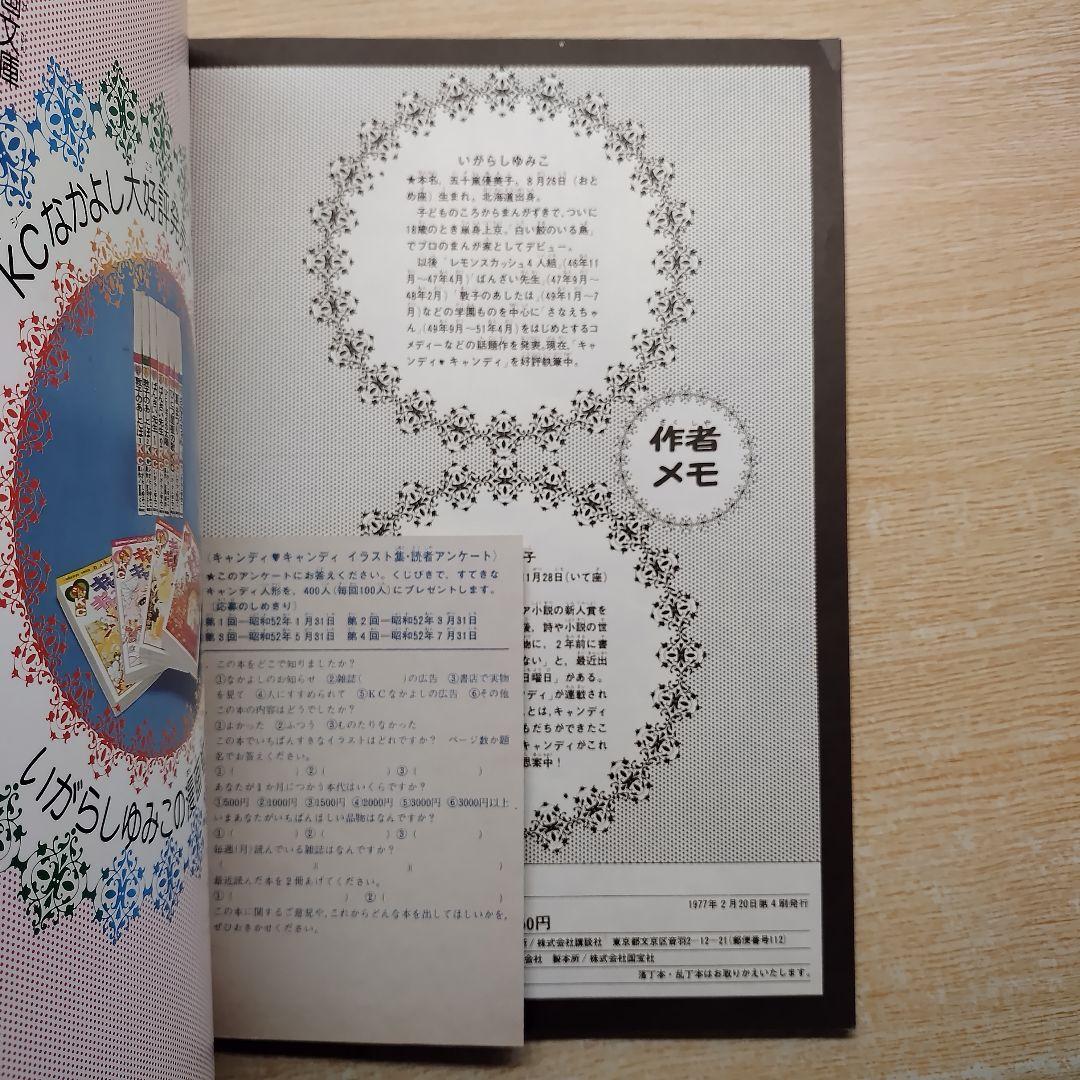 KCなかよし大好評
いがらしゆみこの
いがらしゆみこ
★本名、五十嵐優美子。8月26日(おと
め座)生まれ。北海道出身。
子どものころからまんがずきで、ついに
18歳のとき単身上京。「白い鮫のいる島」
でプロのまんが家としてデビュー。
以後「レモンスカッシュ4人組」(46年11
月〜47年4月)「ばんざい先生」(47年9月〜
48年2月)「敦子のあしたは」(49年1月〜7
月)などの学園ものを中心に「さなえちゃ
ん」(49年9月〜51年4月)をはじめとするコ
メディーなどの話題作を発表。現在、「キャ
ンディ♥キャンディ」を好評執筆中。
作者
メモ
子
1月28日(いて座)
ア小説の新人賞を
後、詩や小説の世
に、2年前に書
ない」と、最近出
日曜日」がある。
ディ」が連載され
とは、キャンディ
もだちができたこ
キャンディがこれ
思案中!
〈キャンディ♥キャンディ イラスト集・読者アンケート〉
★このアンケートにお答えください。くじびきで、すてきな
キャンディ人形を、400人(毎回100人)にプレゼントします。
〔応募のしめきり〕
第1回—昭和52年1月31日 第2回—昭和52年3月31日
第3回—昭和52年5月31日 第4回—昭和52年7月31日
この本をどこで知りましたか?
①なかよしのお知らせ ②雑誌( )の広告 ③書店で実物
を見て ④人にすすめられて ⑤KCなかよしの広告 ⑥その他
この本の内容はどうでしたか?
①よかった ②ふつう ③ものたりなかった
この本でいちばんすきなイラストはどれですか? ページ数か題
名でお答えください。
①( ) ②( ) ③( )
あなたが1か月につかう本代はいくらですか?
①500円 ②1000円 ③1500円 ④2000円 ⑤3000円 ⑥3000円以上
いまあなたがいちばんほしい品物はなんですか?
①( ) ②( ) ③( )
毎週(月)読んでいる雑誌はなんですか?
( )( )( )
最近読んだ本を2冊あげてください。
①( ) ②( )
この本に関するご意見や、これからどんな本を出してほしいかを、
ぜひおきかせください。
1977年2月20日第4刷発行
0円
所/株式会社講談社 東京都文京区音羽2-12-21(郵便番号112)
会社 製本所/株式会社国宝社
落丁本・乱丁本はお取りかえいたします。